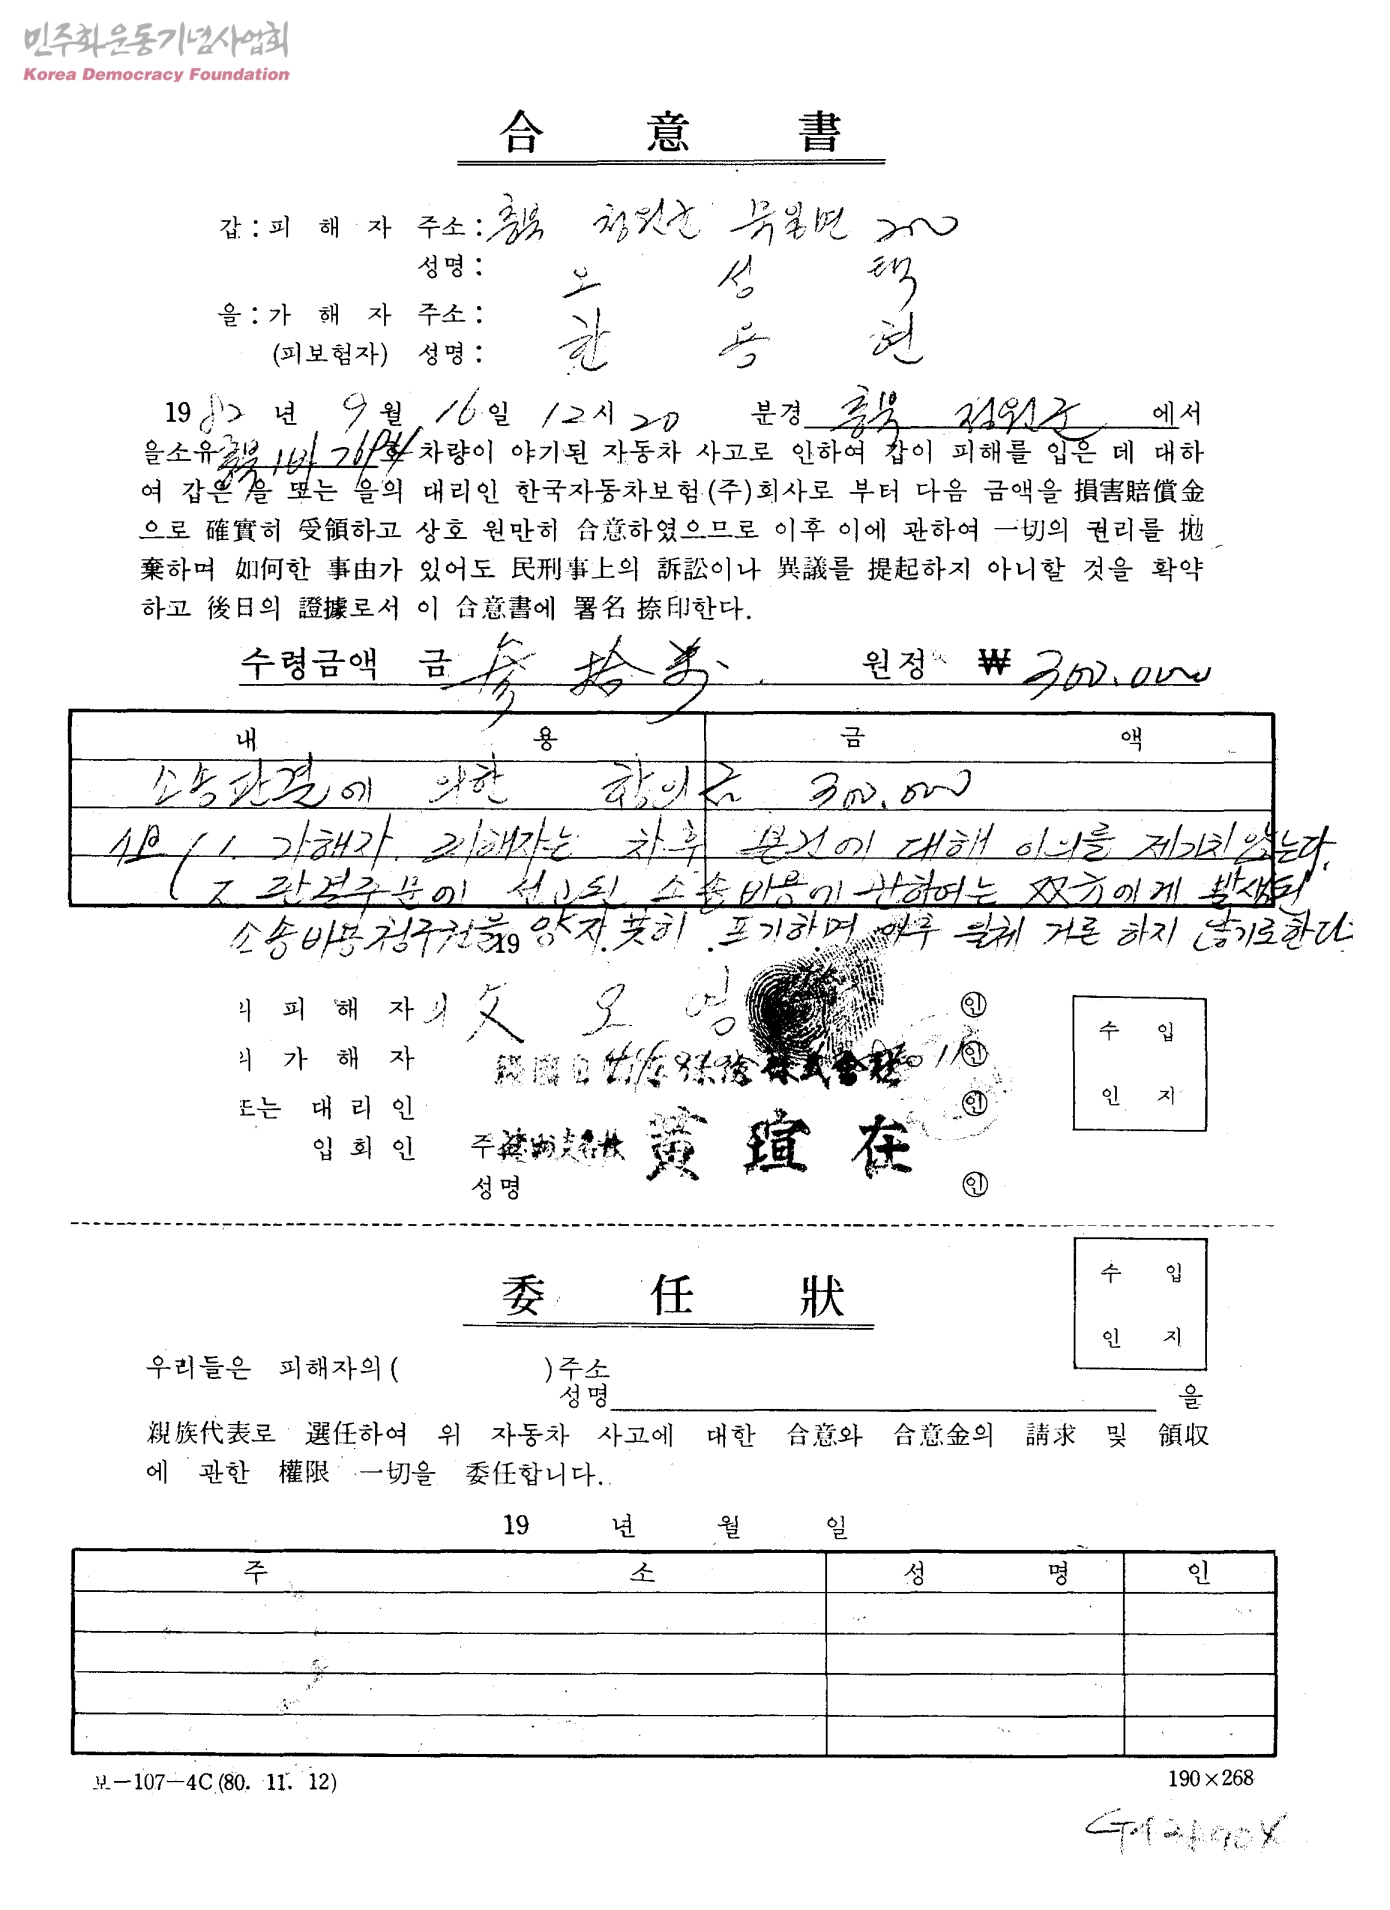 민주화운동기념사업회
Korea Democracy Foundation
合 意 書
갑 : 피 해 자 주소 : 충북 청원군
성명 : 오 성 택
을 : 가 해 자 주소 :
(피보험자) 성명 : 한 용 현
1982년 9월 16일 12시 20 분경 충북 청원군 에서
을소유 충북 1바 차량이 야기된 자동차 사고로 인하여 갑이 피해를 입은 데 대하
여 갑은 을 또는 을의 대리인 한국자동차보험(주)회사로 부터 다음 금액을 損害賠償金
으로 確實히 受領하고 상호 원만히 合意하였으므로 이후 이에 관하여 一切의 권리를 抛
棄하며 如何한 事由가 있어도 民刑事上의 訴訟이나 異議를 提起하지 아니할 것을 확약
하고 後日의 證據로서 이 合意書에 署名 捺印한다.
수령금액 금 參拾萬 원정 ₩ 300.000
내 용 금 액
소송판결에 의한 합의금 300.000
1. 가해자. 피해자는 차후 본건에 대해 이의를 제기치 않는다.
2. 판결주문에 선고된 소송비용에 관하여는 双方에게 발생된
소송비용청구권을 포기하며 일체 거론 하지 않기로한다.
19
의 피 해 자 의 父 오 영 인
의 가 해 자 인
또는 대 리 인 인
입 회 인 주 黃 瑄 在
성명 인
수 입
인 지
委 任 狀
수 입
인 지
우리들은 피해자의( )주소
성명 을
親族代表로 選任하여 위 자동차 사고에 대한 合意와 合意金의 請求 및 領収
에 관한 權限 一切을 委任합니다.
19 년 월 일
주 소 성 명 인
보-107-4C (80. 11. 12)
190×268